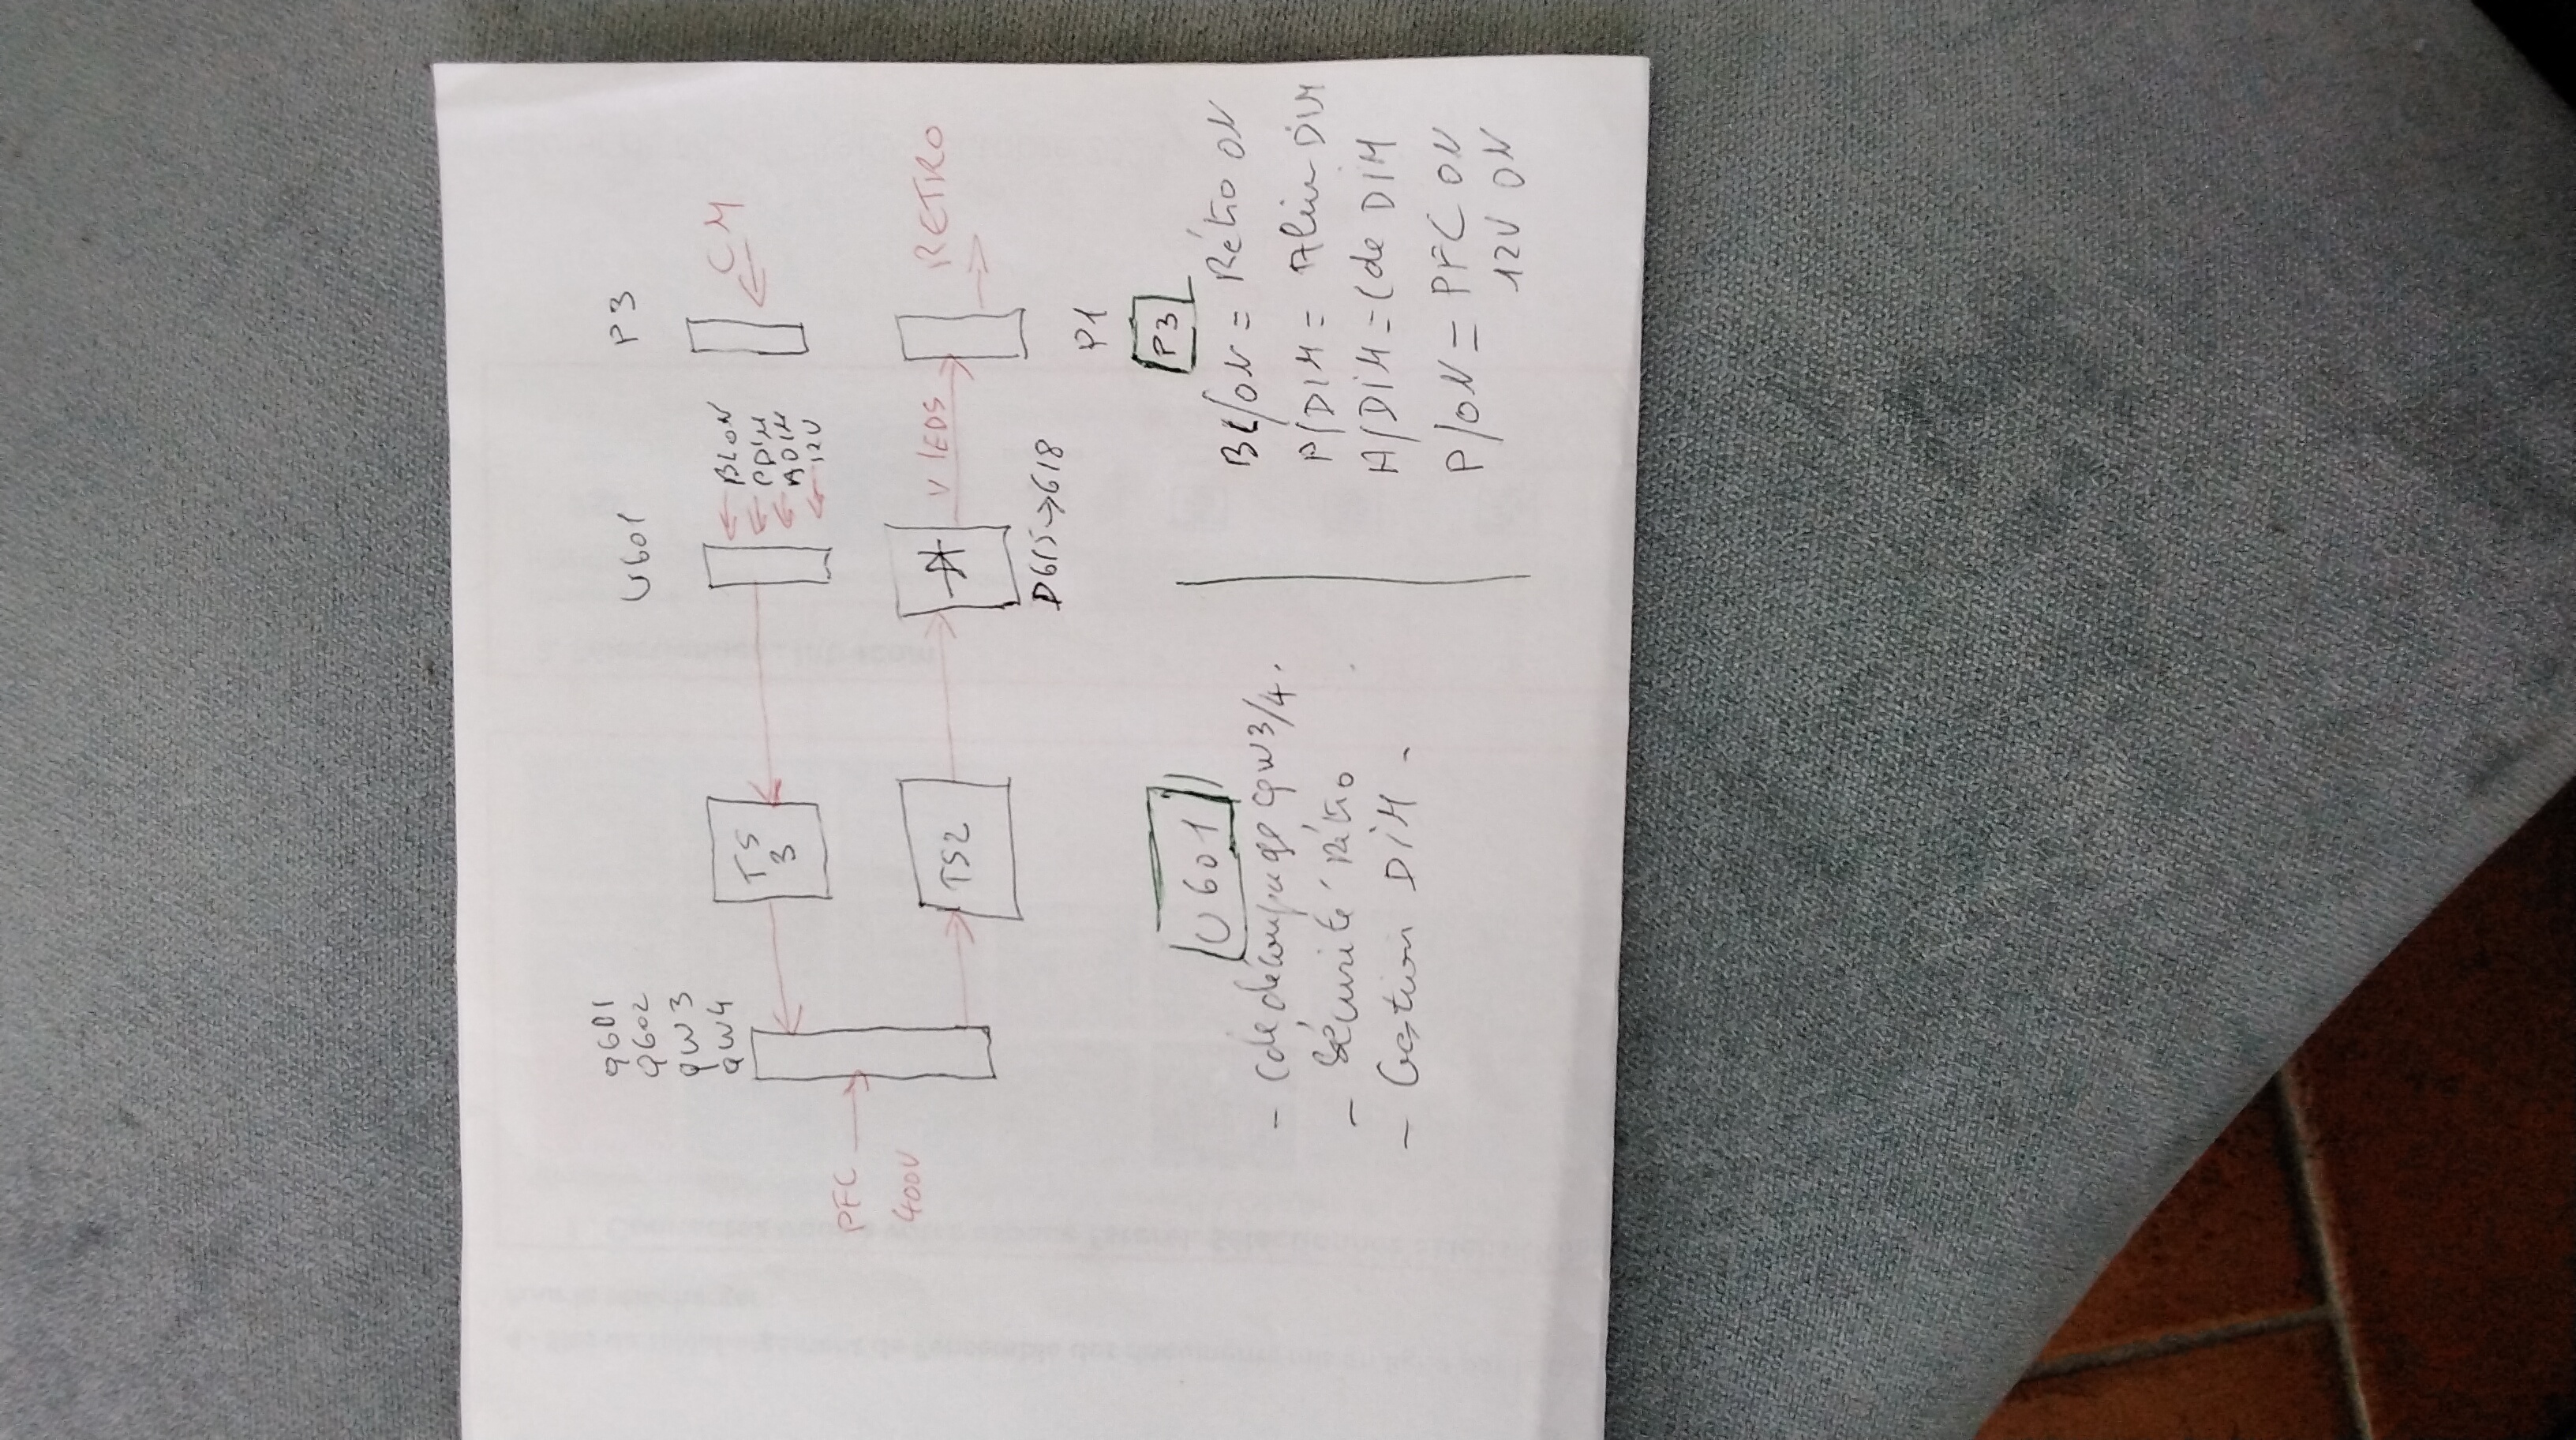 Q601
Q602
QW3
QW4
U601
P3
TS
3
BLON
PDIM
ADIM
12V
CM
PFC
400V
TS2
V LEDS
RETRO
D615→618
P1
U601
- Cde découpage QW3/4.
- Sécurité Rétro
- Gestion DIM -
P3
BL/ON = Rétro ON
P/DIM = Alim DIM
A/DIM = Cde DIM
P/ON = PFC ON
12V ON